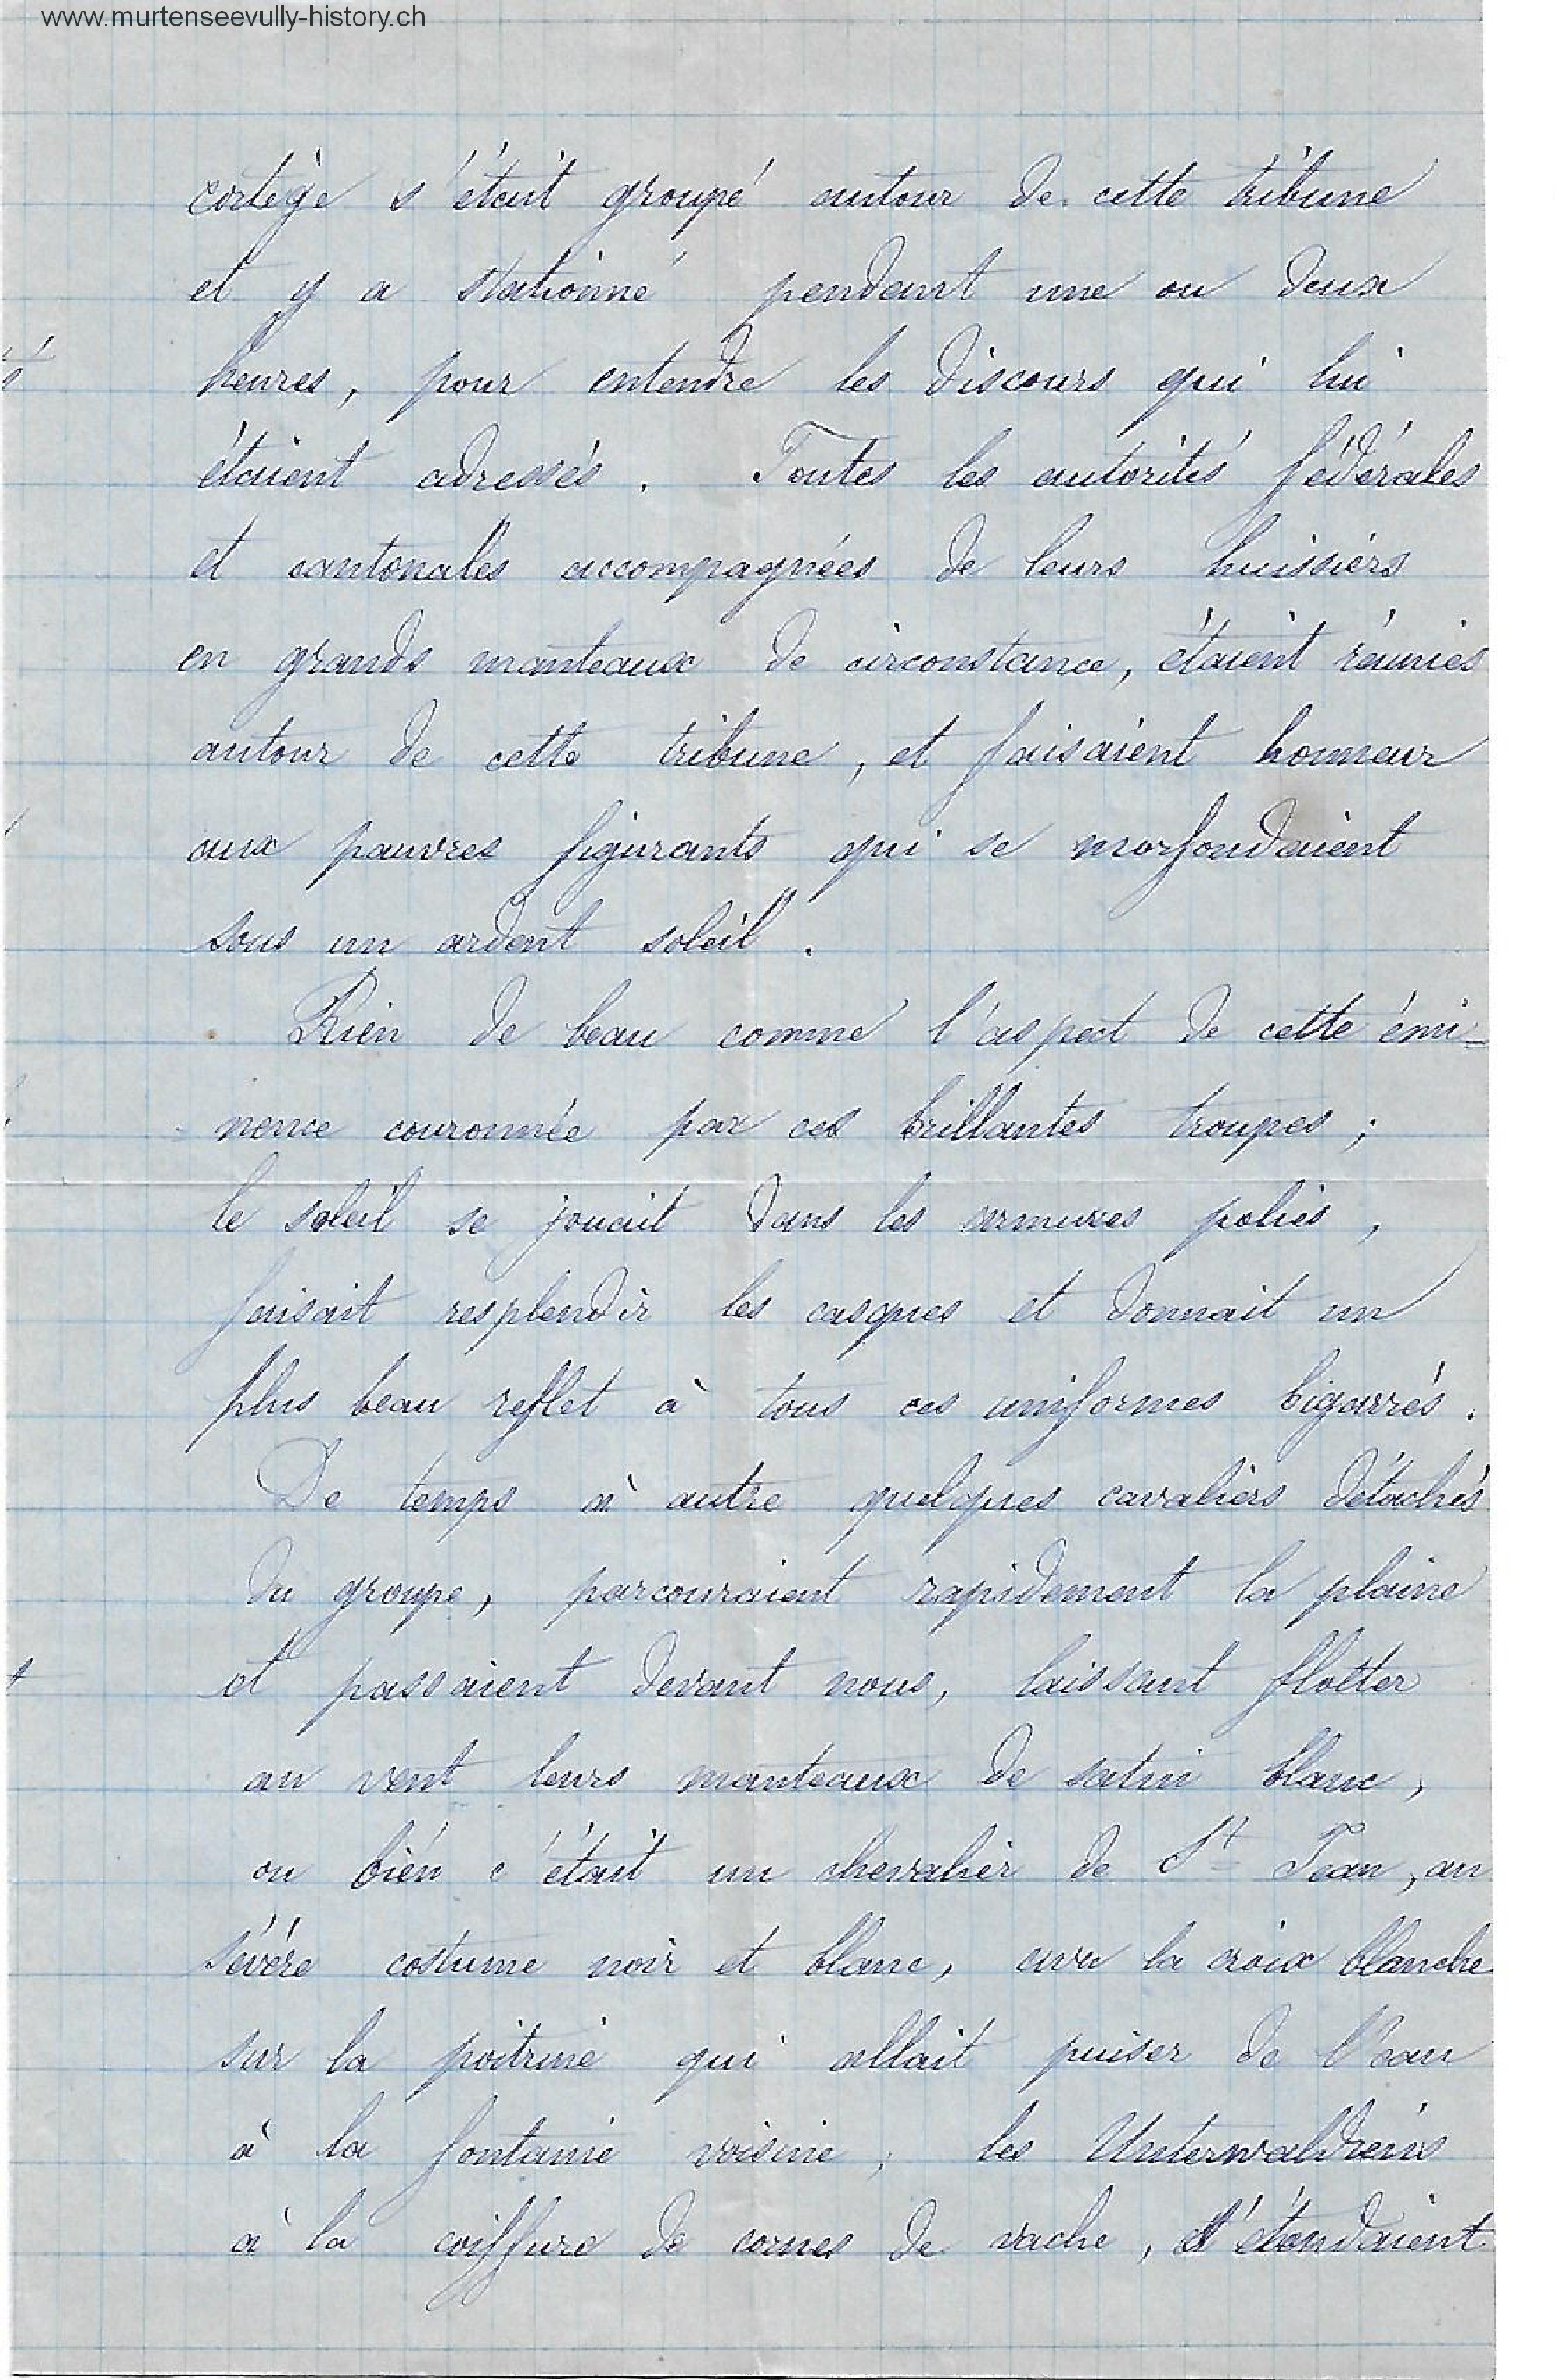 www.murtenseevully-history.ch
cortège s'était groupé autour de cette tribune
et y a stationné pendant une ou deux
heures, pour entendre les discours qui lui
étaient adressés. Toutes les autorités fédérales
et cantonales accompagnées de leurs huissiers
en grands manteaux de circonstance, étaient réunies
autour de cette tribune, et faisaient honneur
aux pauvres figurants qui se morfondaient
sous un ardent soleil.
Rien de beau comme l'aspect de cette émi=
nence couronnée par ces brillantes troupes ;
le soleil se jouait dans les armures polies,
faisait resplendir les casques et donnait un
plus beau reflet à tous ces uniformes bigarrés.
De temps à autre quelques cavaliers détachés
du groupe, parcouraient rapidement la plaine
et passaient devant nous, laissant flotter
au vent leurs manteaux de satin blanc,
ou bien c'était un chevalier de St Jean, au
sévére costume noir et blanc, avec la croix blanche
sur la poitrine qui allait puiser de l'eau
à la fontaine voisine ; les Unterwaldiens
à la coiffure de cornes de vache, s'étendaient